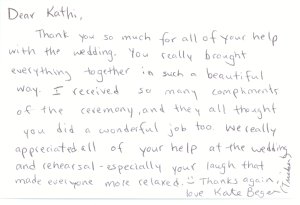 Dear Kathi,
Thank you so much for all of your help
with the wedding. You really brought
everything together in such a beautiful
way. I received so many compliments
of the ceremony, and they all thought
you did a wonderful job too. We really
appreciated all of your help at the wedding
and rehearsal - especially your laugh that
made everyone more relaxed. Thanks again,
love Kate Begen